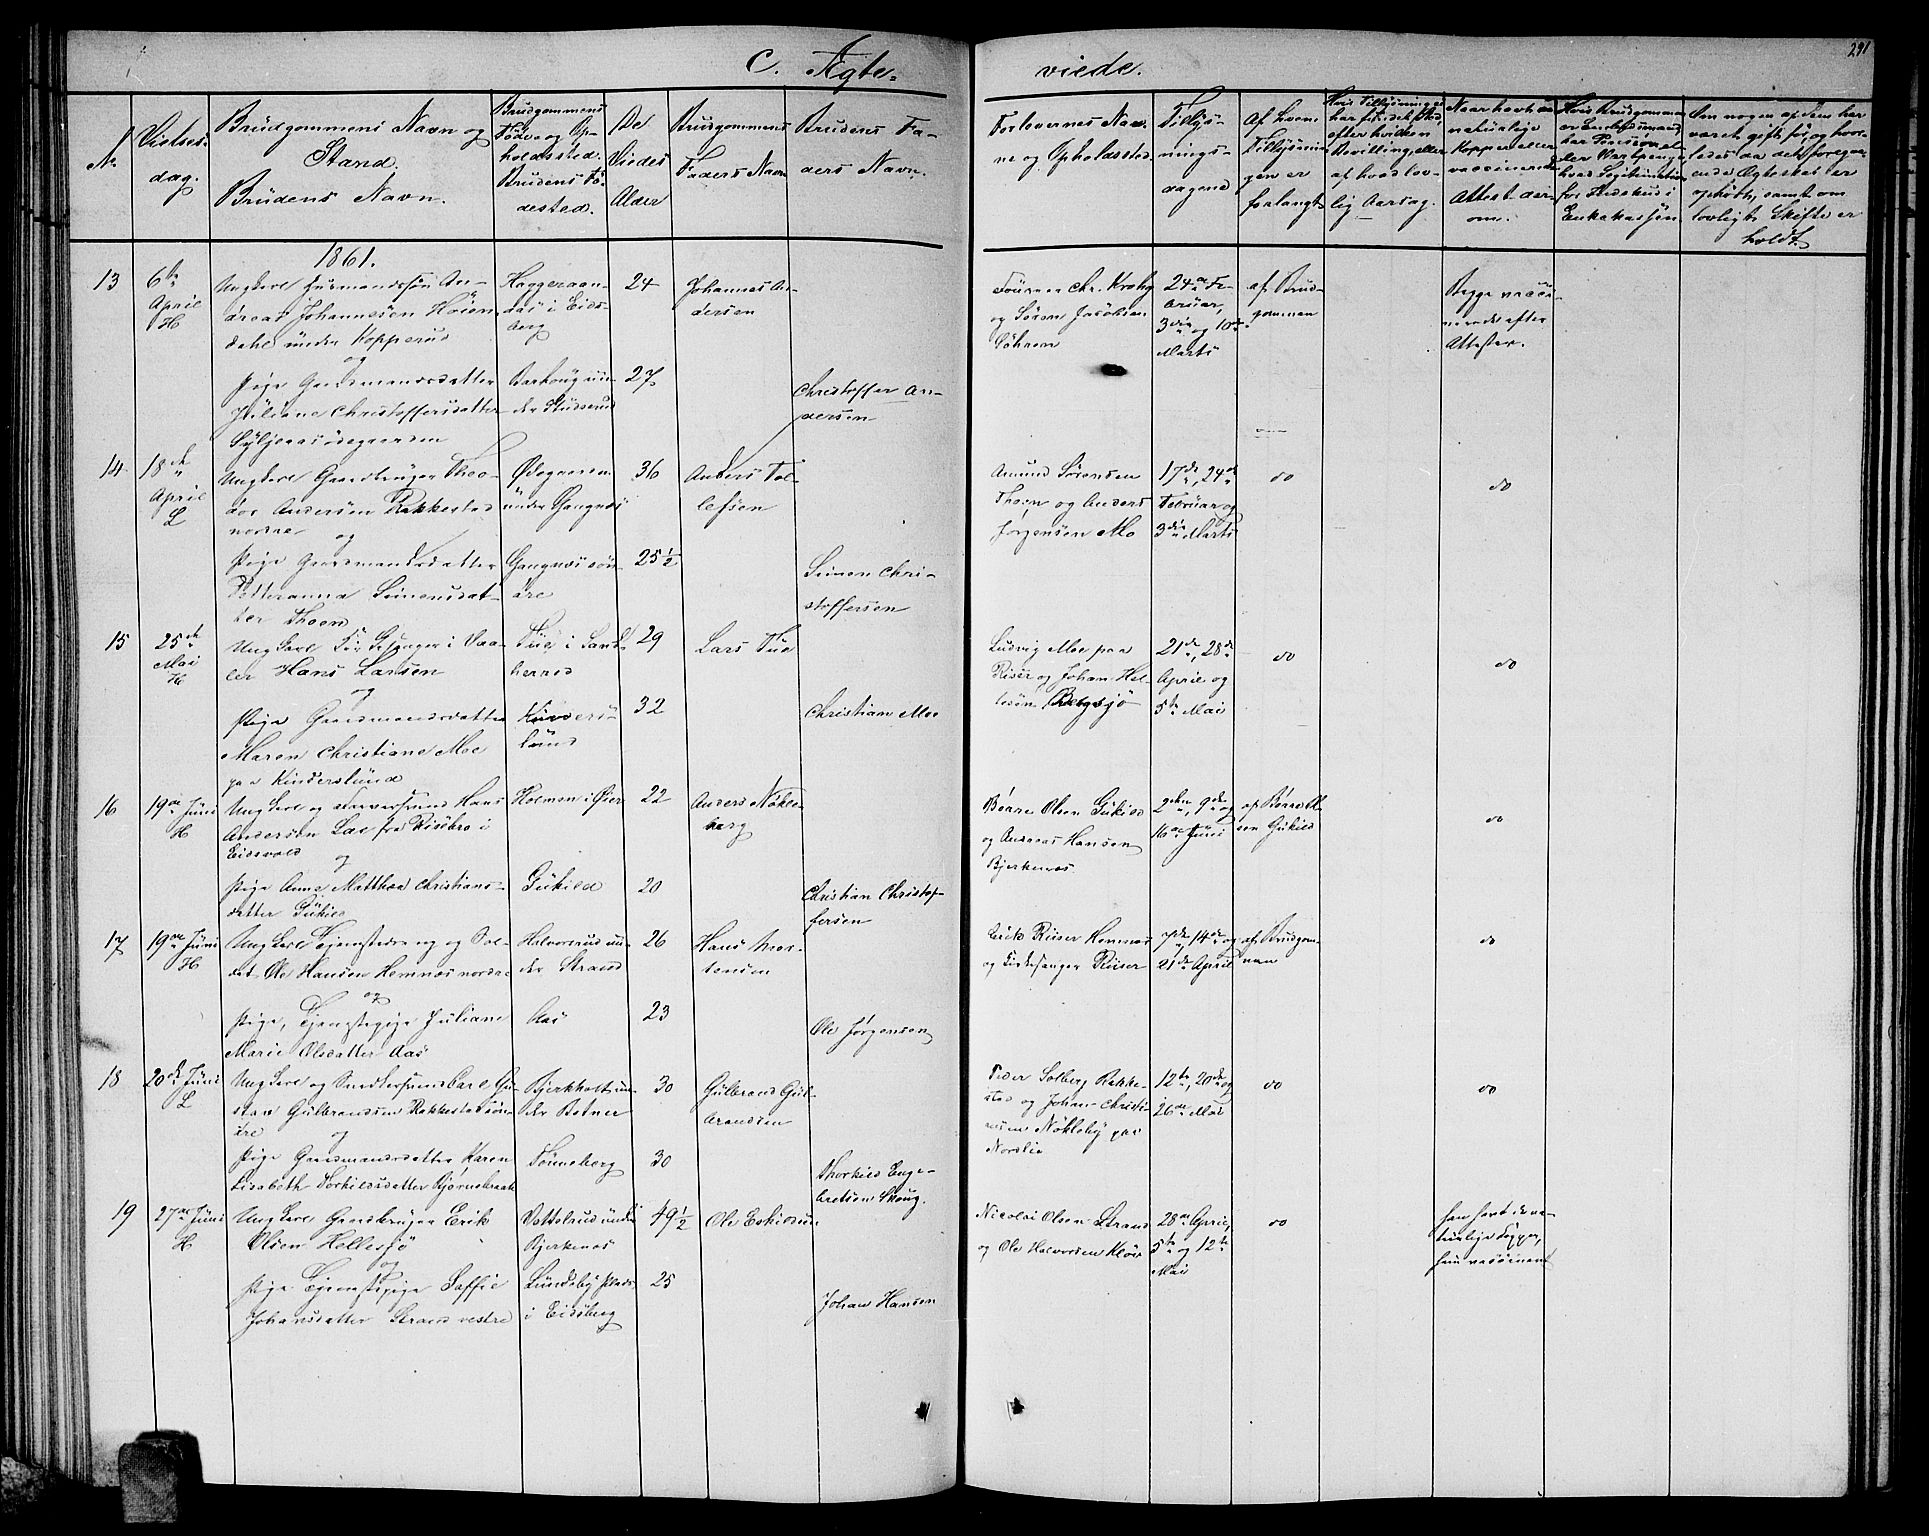 C. Ægte-
viede.
291
No
Vielses-
dag.
Brudgommens Navn og
Stand.
Brudens Navn.
Brudgommens
Føde og Op-
holdssted.
Brudens Fø-
dested.
De
Viedes
Alder
Brudgommens
Faders Navn
Brudens Fa-
ders Navn.
Forlovernes Nav-
ne og Opholdssted
Tillys-
nings-
dagene
Af hvem
Tillysnin-
gen er
forlangt
Hvis Tillysning ei
har fundet Sted
efter hvilken
Bevilling, eller
af hvad lov-
lig Aarsag.
Naar havt de
naturlige
Kopper eller
vaccinerede
Attest der-
om.
Hvis Brudgommen
er Landmilitær
for Indskud i
Enkekassen
Om nogen af dem har
været gift før og hvor-
ledes da det foregaa-
ende Ægteskab er
ophørt, samt om
lovligt Skifte er
holdt.
1861.
13
6te
April
H
Ungkarl Huusmandssøn An-
dreas Johannesen Høien-
dahl under Kopperud
og
Pige Gaardmandsdatter
Juliane Christoffersdatter
Haggeraan-
das i Eids-
berg
24
27
Johannes An-
dersen
Christoffer An-
dersen
og Søren Jacobsen
24de Fe-
bruar,
3die og 10de
Marts
af Brud-
gommen
Begge vacci-
nerede efter
Attester.
14
18de
April
L
Ungkarl Gaardbruger Theo-
dor Andersen Rakkestad
nordre
og
Pige Gaardmandsdatter
Petteranna Simensdat-
ter Thoen
Ødegaarden
under Gangnæs
Gangnæs søn-
dre
36
25 1/2
Anders Tol-
lefsen
Simen Chri-
stoffersen
Amund Sørensen
Thoen og Anders
Jørgensen Mo
17de, 24de
Februar og
3die Marts
do
do
15
25de
Mai
H
Ungkarl Kirkesanger i Vaa-
ler Hans Larsen
og
Pige Gaardmandsdatter
Maren Christiane Moe
paa Kinderslund
Tue i Sand-
herred
Kinders-
lund
29
32
Lars Tue
Christian Moe
Ludvig Moe paa
Risør og Johan Hel-
lesøn Bergsjø
21de, 28de
April og
5te Mai
do
do
16
19de Juni
H
Ungkarl og Farversvend Hans
Andersen Lae fra Risebro i
Eidsvold
og
Pige Anne Matthea Christians-
datter Gukild
Holmen i Øier
Gukild
22
20
Anders Nøkle-
berg
Christian Christof-
fersen
Børre Olsen Gukild
og Andreas Hansen
Bjerkenæs
2den, 9de og
16de Juni
af Børre Ol-
sen Gukild
do
17
19de Juni
H
Ungkarl Tjenestedreng og Sol-
dat Ole Hansen Hemnæs nordre
og
Pige, Tjenestepige Juliane
Marie Olsdatter Aas
Halvorsrud un-
der Strand
Aas
26
23
Hans Mor-
tensen
Ole Jørgensen
Erik Riiser Hemnæs
og Kirkesanger Riiser
7de, 14de og
21de April
af Brudgom-
men
do
18
20de Juni
L
Ungkarl og Snedkersvend Carl Gu-
stav Gulbrandsen Rakkestad søn-
dre
og
Pige Gaardmandsdatter Karen
Lisabeth Torkildsdatter Bjørnebraate
Bjerkholt un-
der Botner
Tønneberg
30
30
Gulbrand Gul-
brandsen
Thorkild Enge-
bretsen Skoug.
Peder Solberg Rakke-
stad og Johan Christi-
ansen Nøkleby paa
Nordlie
12te, 20de og
26de Mai
do
do
19
27de Juni
H
Ungkarl Gaardbruger Erik
Olsen Hellesjø
og
Pige Tjenestepige Saffie
Johansdatter Strand vestre
Vattelsrud under
Bjerkenæs
Lundeby Plads
i Eidsberg
49 1/2
25
Ole Eskildsen
Johan Hansen
Nicolai Olsen Strand
og Ole Halvorsen Kløv
28de April,
5te og 12te
Mai
do
han havt de na-
turlige Kopper,
hun vaccineret